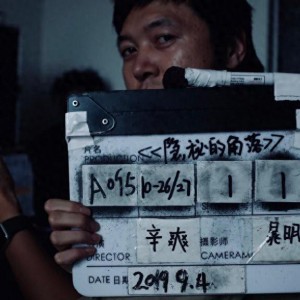 片名 <<隐秘的角落>>
PRODUCTION
A095 10-26/27 1 1
辛爽 摄影师 晁明
DIRECTOR CAMERAMAN
DATE 日期 2019.9.4